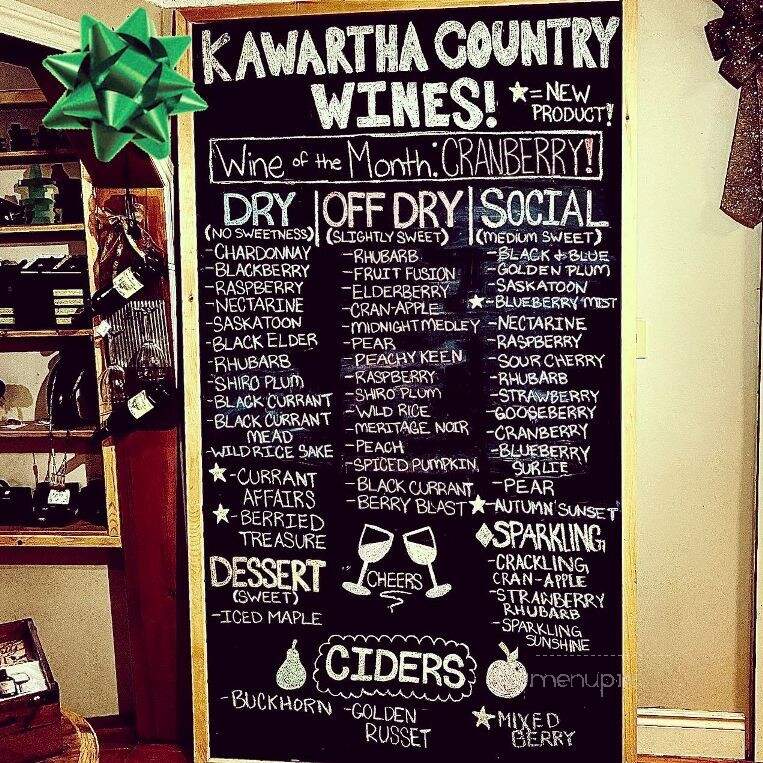 KAWARTHA COUNTRY
WINES!
★=NEW
PRODUCT!
Wine of the Month: CRANBERRY!
DRY
(NO SWEETNESS)
-CHARDONNAY
-BLACKBERRY
-RASPBERRY
-NECTARINE
-SASKATOON
-BLACK ELDER
-RHUBARB
-SHIRO PLUM
-BLACK CURRANT
-BLACK CURRANT
MEAD
-WILD RICE SAKE
★-CURRANT
AFFAIRS
★-BERRIED
TREASURE
DESSERT
(SWEET)
-ICED MAPLE
OFF DRY
(SLIGHTLY SWEET)
-RHUBARB
-FRUIT FUSION
-ELDERBERRY
-CRAN-APPLE
-MIDNIGHT MEDLEY
-PEAR
-PEACHY KEEN
-RASPBERRY
-SHIRO PLUM
-WILD RICE
-MERITAGE NOIR
-PEACH
-SPICED PUMPKIN
-BLACK CURRANT
-BERRY BLAST
CHEERS
SOCIAL
(MEDIUM SWEET)
-BLACK & BLUE
-GOLDEN PLUM
-SASKATOON
★-BLUEBERRY MIST
-NECTARINE
-RASPBERRY
-SOUR CHERRY
-RHUBARB
-STRAWBERRY
-GOOSEBERRY
-CRANBERRY
-BLUEBERRY
SUR LIE
-PEAR
★-AUTUMN SUNSET
◆SPARKLING
-CRACKLING
CRAN-APPLE
-STRAWBERRY
RHUBARB
-SPARKLING
SUNSHINE
CIDERS
-BUCKHORN
-GOLDEN
RUSSET
★-MIXED
BERRY